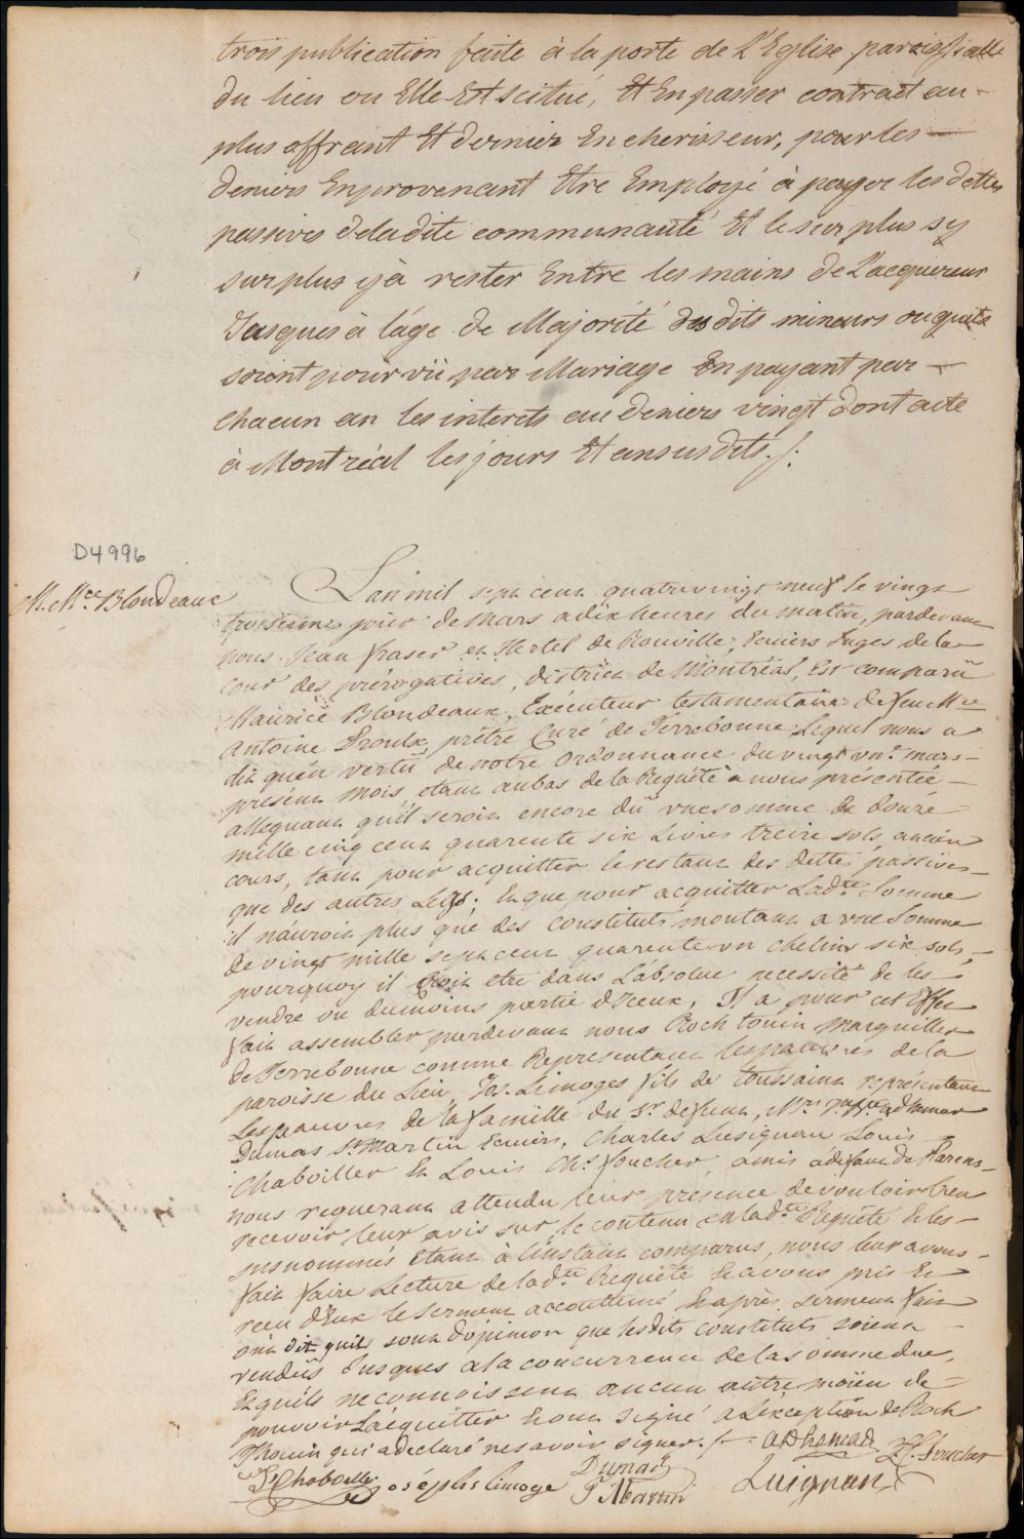 trois publication faite à la porte de L'Eglise paroissialle
du lieu ou Elle Est scitué, Et En passer contrait au-
plus offrant Et dernier Encherisseur, pour les —
deniers Enprovenant Etre Employé à payer les dettes
passives deladite communauté Et le surplus sy
surplus yà rester Entre les mains de L'acquereur
Jusques à l'áge de Majorité desdits mineurs ou quils
soient pourvû par Mariage En payant par —
Chacun an les interets au deniers vingt dont acte
à Montréal les jours Et ansusdits ./.
D4996
M. Mce. Blondeaux
L'an mil sept cent quatrevingt neuf le vingt
troisieme jour de Mars a dix heures du matin, pardevant
nous Jean fraser et Hertel de Rouville, Ecuiers Juges de la
cour des prérogatives, district de Montréal, Est comparu
Maurice Blondeaux, Exécuteur testamentaire de feu Mre
Antoine Proulx, prêtre Curé de Terrebonne Lequel nous a
dit qu'en vertu de notre ordonnance du vingt un mars-
présent mois etant aubas de la Requête a nous présentée —
alleguant qu'il seroit encore du une somme de douze
mille cinq cent quarente six Livres treize sols, ancien
cours, tant pour acquitter le restant des dette passives —
que des autres Legs; Et que pour acquitter Ladte Somme
il n'auroit plus que des constituts montant a une Somme
de vingt mille sept cent quarente un chelins six sols, —
pourquoy il etoit etre dans L'absolue necessité de les
vendre ou dumoins partie d'Iceux, Il a pour cet Effet
fait assembler pardevant nous Roch touin Marguiller
de Terrebonne comme Representant les pauvres de la
paroisse du Lieu, Jos. Limoges fils de toussaint représentant
Les pauvres de la famille du Sr. defunt, Mrs. adhemar
Dumas St Martin Ecuiers, Charles Lusignan Louis
Chaboiller Et Louis Chs. foucher, amis adefaut de Parens —
nous requerant attendu leur presence devouloir bien
recevoir leur avis sur le contenu en ladte Requête Et les —
susnommés Etant à l'instant comparus, nous leur avons —
fait faire Lecture de ladte Requête Et avons pris Et
recu d'Eux le serment accoutumé Et après serment fait
ont dit quils sont d'opinion que lesdits constituts soient —
vendus Jusques a la concurrence de la somme due,
Et quils ne connoissent aucun autre moïen de =
pouvoir L'acquitter Et ont signé a L'exception de Roch
Thouin qui a declaré ne savoir signer. /. ADhemar L C foucher
Ls Chaboillez Joséphs limoge Dumas Lusignan
P Martin